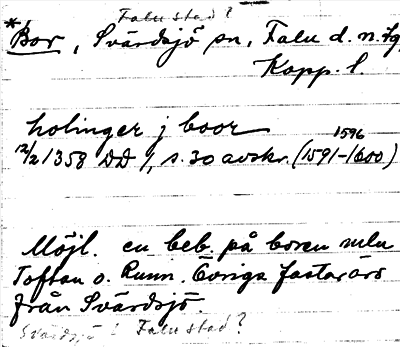 Falu stad?
*Bor, Svärdsjö sn, Falu d. n. tg,
Kopp. l.
holinger j boor
1596
12/2 1358 DD 1, s. 30 avskr. (1591-1600)
Möjl. en beb. på boren mln
Toftan o. Runn. Övriga fastar ärs
från Svärdsjö.
Svärdsjö? Falu stad?